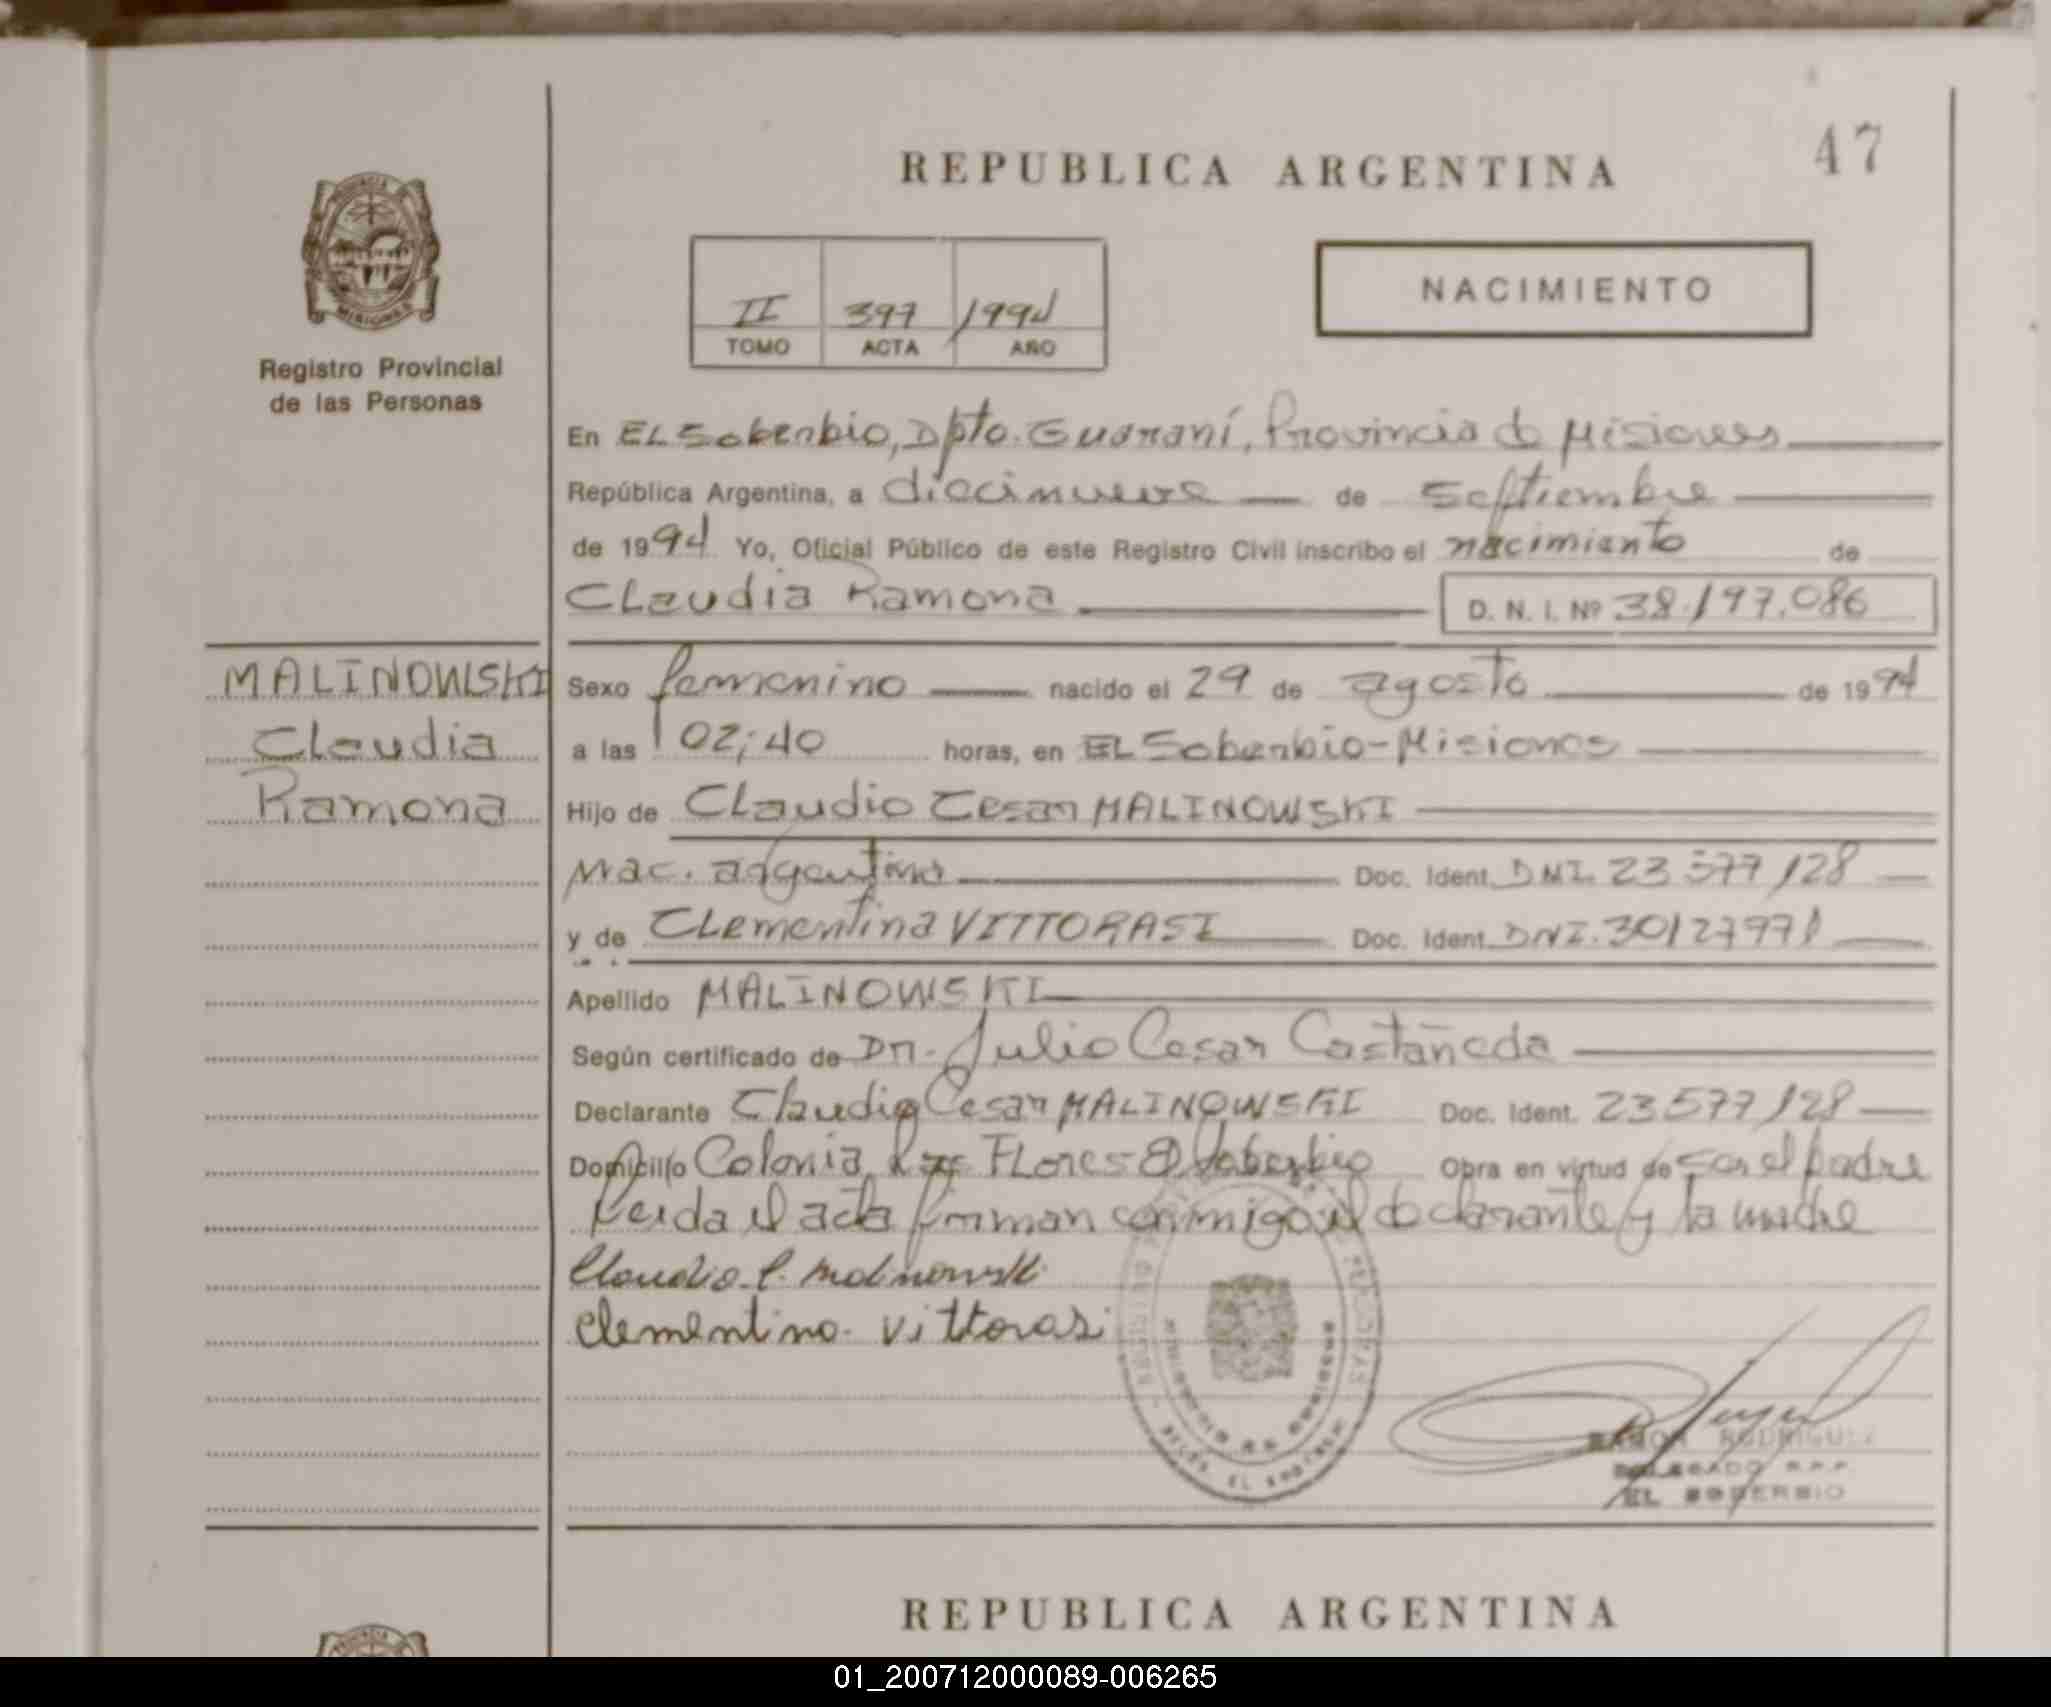 47
REPUBLICA ARGENTINA
NACIMIENTO
II 397 1994
TOMO ACTA AÑO
PROVINCIA
MISIONES
Registro Provincial
de las Personas
En EL Soberbio, Dpto. Guaraní, Provincia de Misiones
República Argentina, a diecinueve de Septiembre
de 1994 Yo, Oficial Público de este Registro Civil inscribo el nacimiento de
Claudia Ramona D. N. I. Nº 38.197.086
MALINOWSKI
Claudia
Ramona
Sexo femenino nacido el 29 de agosto de 1994
a las 02;40 horas, en EL Soberbio-Misiones
Hijo de Claudio Cesar MALINOWSKI
nac. argentina Doc. Ident. DNI. 23 577 128
y de Clementina VITTORASI Doc. Ident. DNI. 30127971
Apellido MALINOWSKI
Según certificado de Dr. Julio Cesar Castañeda
Declarante Claudio Cesar MALINOWSKI Doc. Ident. 23577128
Domicilio Colonia Las Flores El Soberbio Obra en virtud de ser el padre
Leida el acta firman conmigo el declarante y la madre
Claudio C. Malinowski
Clementina Vittorasi
RAMON RODRIGUEZ
DELEGADO R.P.P
EL SOBERBIO
REPUBLICA ARGENTINA
01_200712000089-006265